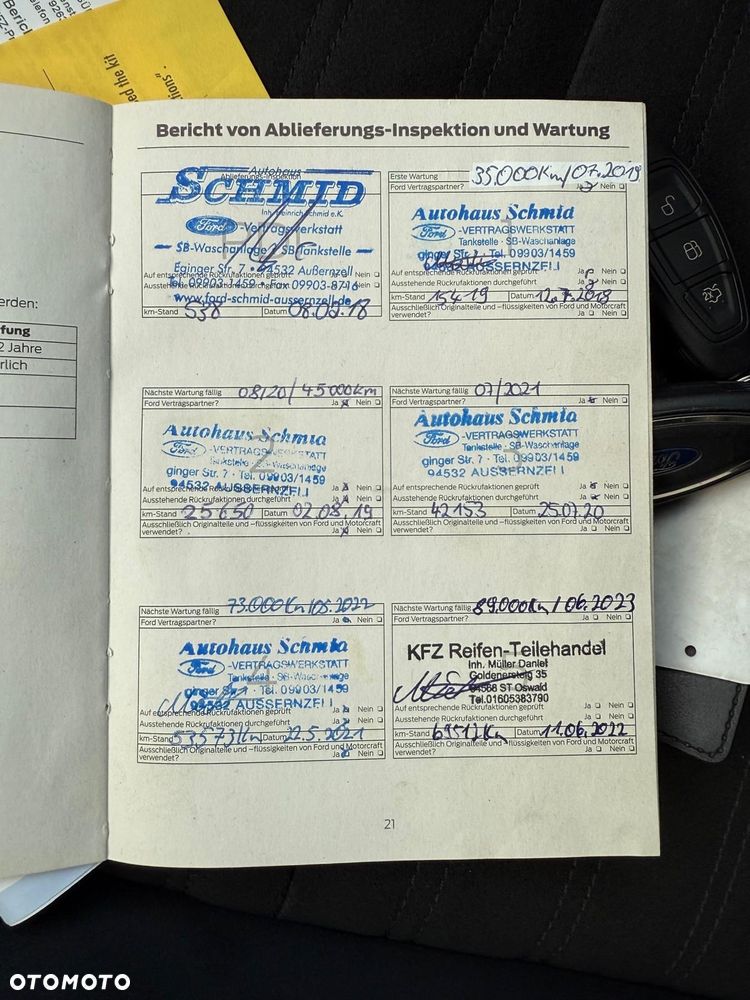 Bericht von Ablieferungs-Inspektion und Wartung
Autohaus
Ablieferungs-Inspektion
SCHMID
Inh. Heinrich Schmid e.K.
Ford -Vertragswerkstatt
– SB-Waschanlage SB Tankstelle –
Eginger Str. 7 94532 Außernzell
Auf entsprechende Rückrufaktionen geprüft Ja Nein
Tel. 09903-1459 • Fax 09903-8716
Ausstehende Rückrufaktionen durchgeführt Nein
www.ford-schmid-aussernzell.de
km-Stand 538 Datum 08.02.18
Erste Wartung 35.000Km/07.2019
Ford Vertragspartner? Ja Nein
1
Autohaus Schmid
Ford -VERTRAGSWERKSTATT
Tankstelle · SB-Waschanlage
ginger Str. 7 · Tel. 09903/1459
AUSSERNZELL
Auf entsprechende Rückrufaktionen geprüft Ja Nein
Ausstehende Rückrufaktionen durchgeführt Ja Nein
km-Stand 15419 Datum 12.7.2018
Ausschließlich Originalteile und -flüssigkeiten von Ford und Motorcraft
verwendet? Ja Nein
Nächste Wartung fällig 08/20/45000km
Ford Vertragspartner? Ja Nein
2
Autohaus Schmid
Ford -VERTRAGSWERKSTATT
Tankstelle · SB-Waschanlage
ginger Str. 7 · Tel. 09903/1459
94532 AUSSERNZELL
Auf entsprechende Rückrufaktionen geprüft Ja Nein
Ausstehende Rückrufaktionen durchgeführt Ja Nein
km-Stand 25650 Datum 02.08.19
Ausschließlich Originalteile und -flüssigkeiten von Ford und Motorcraft
verwendet? Ja Nein
Nächste Wartung fällig 07/2021
Ford Vertragspartner? Ja Nein
Autohaus Schmid
Ford -VERTRAGSWERKSTATT
Tankstelle · SB-Waschanlage
ginger Str. 7 · Tel. 09903/1459
94532 AUSSERNZELL
Auf entsprechende Rückrufaktionen geprüft Ja Nein
Ausstehende Rückrufaktionen durchgeführt Ja Nein
km-Stand 42153 Datum 25.07.20
Ausschließlich Originalteile und -flüssigkeiten von Ford und Motorcraft
verwendet? Ja Nein
Nächste Wartung fällig 73.000Km/05.2022
Ford Vertragspartner? Ja Nein
Autohaus Schmid
Ford -VERTRAGSWERKSTATT
Tankstelle · SB-Waschanlage
ginger Str. 7 · Tel. 09903/1459
94532 AUSSERNZELL
Auf entsprechende Rückrufaktionen geprüft Ja Nein
Ausstehende Rückrufaktionen durchgeführt Ja Nein
km-Stand 53573Km Datum 22.5.2021
Ausschließlich Originalteile und -flüssigkeiten von Ford und Motorcraft
verwendet? Ja Nein
Nächste Wartung fällig 89.000Km/06.2023
Ford Vertragspartner? Ja Nein
KFZ Reifen-Teilehandel
Inh. Müller Daniel
Goldenersteig 35
94568 ST Oswald
Tel.01605383790
Auf entsprechende Rückrufaktionen geprüft Ja Nein
Ausstehende Rückrufaktionen durchgeführt Ja Nein
km-Stand Datum 11.06.2022
Ausschließlich Originalteile und -flüssigkeiten von Ford und Motorcraft
verwendet? Ja Nein
21
erden:
fung
2 Jahre
rlich
ctions".
ed the kit
Berich
Ford
OTOMOTO